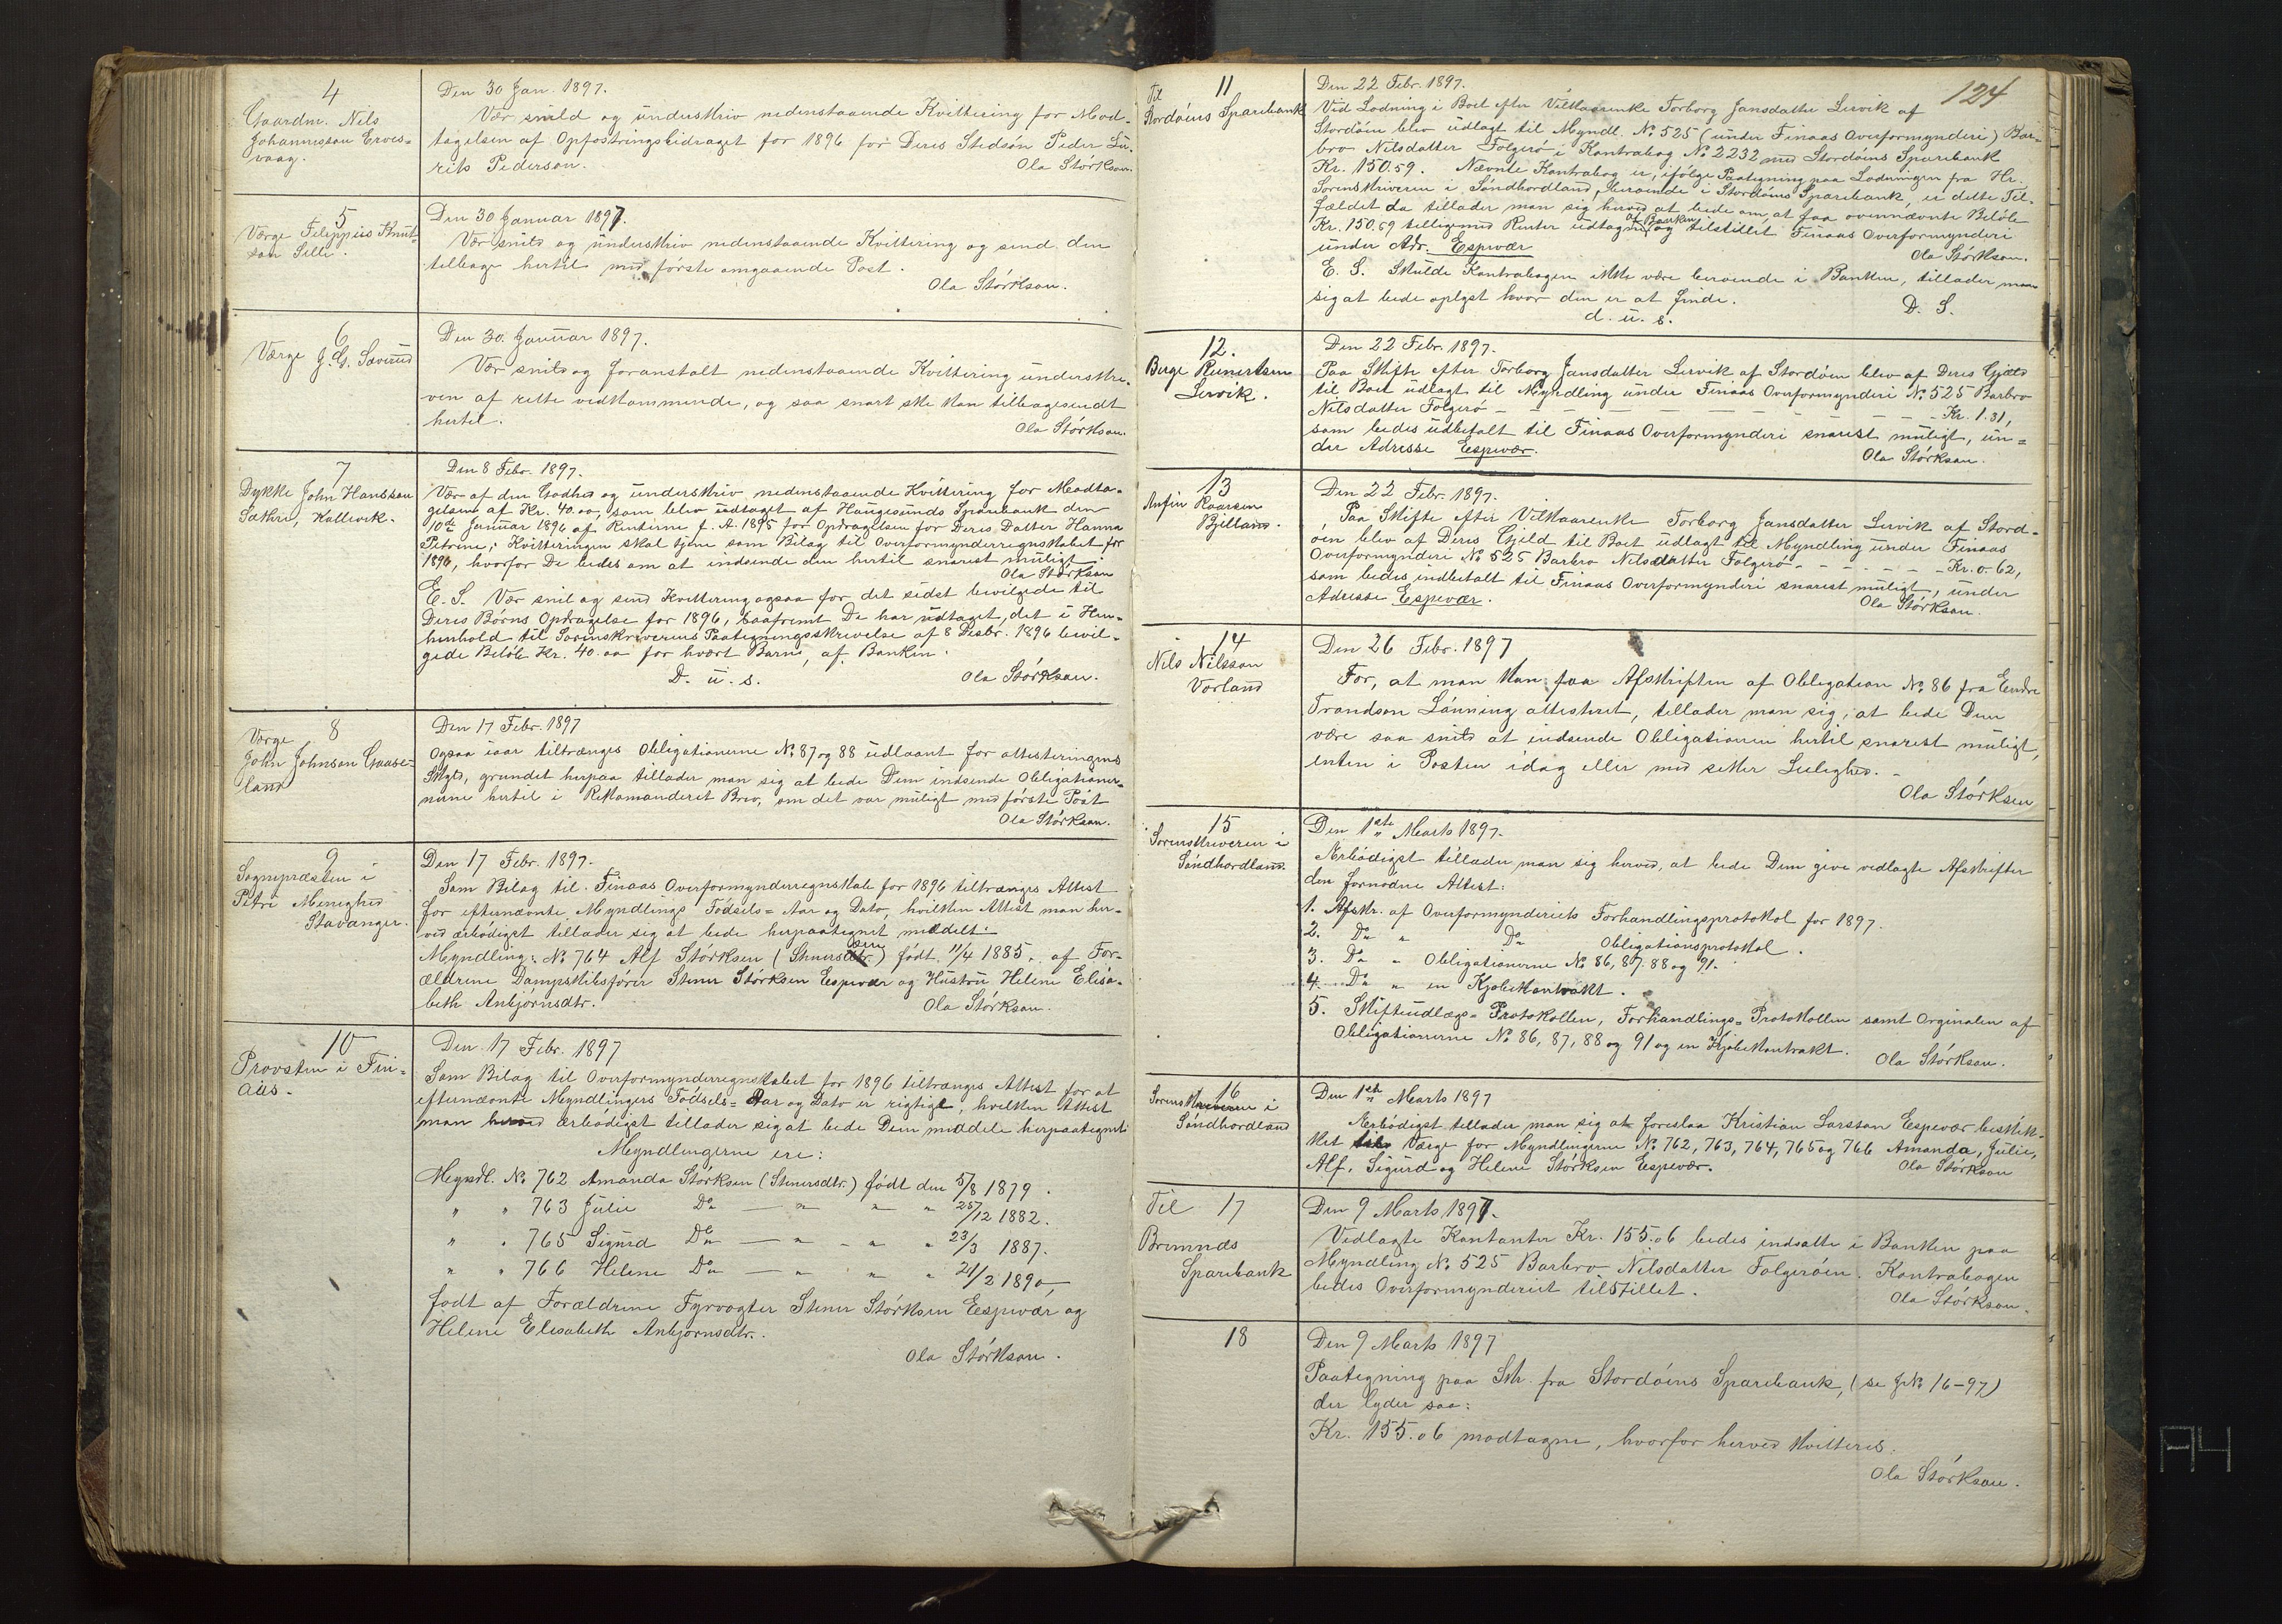 4
Gaardm. Nils
Johannessøn Erves=
vaag.
Den 30 Jan. 1897.
Vær snild og underskriv nedenstaaende Kvittering for Mod-
tagelsen af Opfostringsbidraget for 1896 for Deres Stedsøn Peder
riks Pederson.
Ola Størkson.
5
Værge Filippus Knut-
son Lille.
Den 30 Januar 1897.
Vær snild og underskriv nedenstaaende Kvittering og send den
tilbage hertil med første omgaaende Post.
Ola Størkson.
6
Værge J. G.
Den 30. Januar 1897.
Vær snild og foranstalt nedenstaaende Kvittering underskre-
ven af rette vedkommende, og saa snart ske kan tilbagesendt
hertil.
Ola Størkson.
7
Dykke John Hansson
Sæthre, Kallevik.
Den 8 Febr. 1897.
Vær af den Godhed og underskriv nedenstaaende Kvittering for Modta-
gelsen af Kr. 40.00, som blev udtaget af Haugesunds Sparebank den
10de Januar 1896 af Renterne f. A. 1895 for Opdragelsen for Deres Datter Hanna
Petrine; Kvitteringen skal tjene som Bilag til Overformynderregnskabet for
1896, hvorfor De bedes om at indsende den hertil snarest muligt.
Ola Størkson
E. S. Vær snil og send Kvittering ogsaa for det sidst bevilgede til
Deres Børns Opdragelse for 1896, saafremt De har udtaget, det i Hen-
henhold til Sorenskriverens Paategningsskrivelse af 8 Desbr. 1896 bevil-
gede Beløb Kr. 40.00 for hvært Barn, af Banken.
D. u. s.
Ola Størkson.
8
Værge
John Johnson Gaase-
land
Den 17 Febr. 1897
Ogsaa iaar tiltrænges Obligationerne No 87 og 88 udlaant for attesteringens
Skyld, grundet herpaa tillader man sig at bede Dem indsende Obligationer-
nerne hertil i Rekomanderet Brev, om det var muligt med første Post
Ola Størkson.
9
Sognepræsten i
Petri Menighed
Stavanger.
Den 17 Febr. 1897.
Som Bilag til Finaas Overformynderregnskab for 1896 tiltrænges Attest
for efternævnte Myndlings Fødsels= Aar og Dato, hvilken Attest man her-
ved ærbødigst tillader sig at bede herpaategnet meddelt:
Myndling: No 764 Alf Størksen (Stenersdtr. sen) født 11/4 1885. af For-
ældrene Dampskibsfører Stener Størksen Espevær og Hustru Helene Elisa-
beth Anbjørnsdtr.
Ola Størkson.
10
Provsten i Fin=
aas.
Den 17 Febr. 1897
Som Bilag til Overformynderregnskabet for 1896 tiltrænges Attest for at
efternævnte Myndlingers Fødsels= Aar og Dato er rigtigt, hvilken Attest
man herved ærbødigst tillader sig at bede Dem meddele herpaategnet
Myndlingerne ere:
Myndl. No 762 Amanda Størksen (Stenersdtr.) født den 5/8 1879.
" " 763 Julie Do — " " " 25/12 1882.
" " 765 Sigurd Do — " - " " 23/3 1887.
" " 766 Helene Do — " " " 21/2 1890,
født af Forældrene Fyrvogter Stener Størksen Espevær og
Helene Elisabeth Anbjørnsdtr.
Ola Størkson.
124
11
Til
Stordøens Sparebank
Den 22 Febr. 1897.
Ved Lodning i Boet efter Vilkaarenke Torborg Jansdatter Lervik af
Stordøen blev udlagt til Myndl. No 525 (under Finaas Overformynderi) Bar-
bro Nilsdatter Folgerø i Kontrabog No 2232 med Stordøens Sparebank
Kr. 150.59. Nævnte Kontrabog er, ifølge Paategning paa Lodningen fra Hr.
Sorenskriveren i Søndhordland, beroende i Stordøens Sparebank, er dette Til-
fældet da tillader man sig herved at bede om, at faa ovennævnte Beløb
Kr. 150.59 tilligemed Renter udtaget af Banken og tilstillet Finaas Overformynderi
under Adr. Espevær
Ola Størkson.
E. S. Skulde Kontrabogen ikke være beroende i Banken, tillader man
sig at bede oplyst hvor den er at finde.
D. S.
d. u. s.
12.
Berge Reinertsen
Lervik.
Den 22 Febr. 1897.
Paa Skifte efter Torborg Jansdatter Lervik af Stordøen blev af Deres Gjæld
til Boet udlagt til Myndling under Finaas Overformynderi No 525 Barbro
Nilsdatter Folgerø — — — — — — — — Kr. 1.31,
som bedes udbetalt til Finaas Overformynderi snarest muligt, un=
der Adresse Espevær.
Ola Størkson.
13
Anfin Roarsen
Bjelland.
Den 22 Febr. 1897.
Paa Skifte efter Vilkaarenke Torborg Jansdatter Lervik af Stord-
øen blev af Deres Gjeld til Boet udlagt til Myndling under Finaas
Overformynderi No 525 Barbro Nilsdatter Folgerø - - - - - - Kr. 0.62,
som bedes indbetalt til Finaas Overformynderi snarest muligt, under
Adresse Espevær.
Ola Størkson.
14
Nils Nilsson
Vorland
Den 26 Febr. 1897
For, at man kan faa Afskriften af Obligation No 86 fra Endre
Trondson Lønning attesteret, tillader man sig, at bede Dem
være saa snild at indsende Obligationen hertil snarest muligt,
enten i Posten idag eller med sikker Leilighed.
Ola Størksen
15
Sorenskriveren i
Søndhordland.
Den 1ste Marts 1897.
Ærbødigst tillader man sig herved, at bede Dem give vedlagte Afskrifter
den fornødne Attest:
1. Afskr. af Overformynderiets Forhandlingsprotokol for 1897.
2. Do " Do Obligationsprotokol.
3. Do " Obligationerne No 86, 87. 88 og 91.
4. Do " en Kjøbekontrakt.
5. Skifteudlægs= Protokollen, Forhandlings= Protokollen samt Orginalen af
Obligationerne No 86, 87, 88 og 91 og en Kjøbekontrakt.
Ola Størkson.
16
Sorenskriveren i
Søndhordland
Den 1ste Marts 1897
Ærbødigst tillader man sig at foreslaa Kristian Larsson Espevær beskik-
ket til Værge for Myndlingerne No 762, 763, 764, 765 og 766 Amanda, Julie,
Alf, Sigurd og Helene Størksen Espevær.
Ola Størkson
Til 17
Bremnæs
Sparebank
Den 9 Marts 1897.
Vedlagte Kontanter Kr. 155.06 bedes indsatte i Banken paa
Myndling No 525 Barbro Nilsdatter Folgerøen. Kontrabogen
bedes Overformynderiet tilstillet.
Ola Størkson.
18
Den 9 Marts 1897
Paategning paa Skr. fra Stordøens Sparebank, (se J No. 16-97)
der lyder saa:
Kr. 155.06 modtagne, hvorfor herved kvitteres.
Ola Størkson.